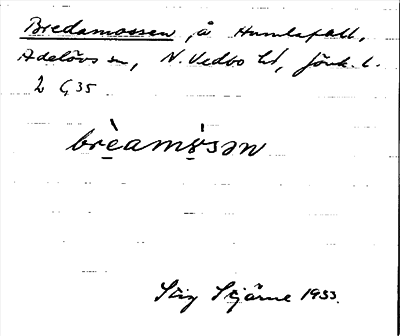 Bredamossen, å Humlafall,
Adelövs sn, N. Vedbo hd, Jönk. l.
2 Ç 35
brèamåsən
Stig Stjärne 1933.